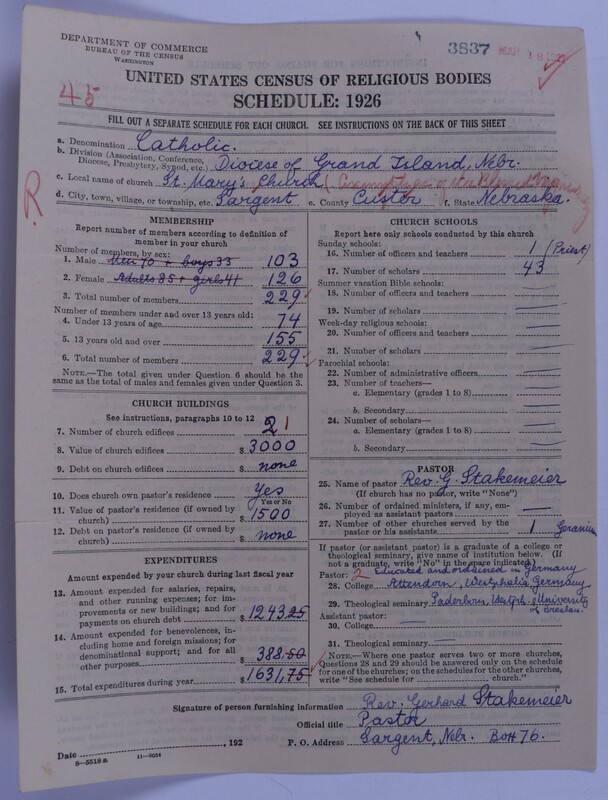 DEPARTMENT OF COMMERCE
BUREAU OF THE CENSUS
WASHINGTON
3837
UNITED STATES CENSUS OF RELIGIOUS BODIES
45
SCHEDULE: 1926
FILL OUT A SEPARATE SCHEDULE FOR EACH CHURCH. SEE INSTRUCTIONS ON THE BACK OF THIS SHEET
a. Denomination Catholic.
b. Division (Association, Conference, Diocese, Presbytery, Synod, etc.) Diocese of Grand Island, Nebr.
c. Local name of church St. Mary's Church
R
d. City, town, village, or township, etc. Sargent e. County Custer f. State Nebraska.
MEMBERSHIP
Report number of members according to definition of
member in your church
Number of members, by sex:
1. Male Men 70 + boys 33 103
2. Female Adults 85 + girls 41 126
3. Total number of members 229
Number of members under and over 13 years old:
4. Under 13 years of age 74
5. 13 years old and over 155
6. Total number of members 229
NOTE.—The total given under Question 6 should be
same as the total of males and females given under Question 3.
CHURCH BUILDINGS
See instructions, paragraphs 10 to 12
7. Number of church edifices 2 1
8. Value of church edifices $ 3000
9. Debt on church edifices $ none
10. Does church own pastor's residence Yes
Yes or No
11. Value of pastor's residence (if owned by
church) $ 1500
12. Debt on pastor's residence (if owned by
church) $ none
EXPENDITURES
Amount expended by your church during last fiscal year
13. Amount expended for salaries, repairs,
and other running expenses; for im-
provements or new buildings; and for
payments on church debt $ 1243.25
14. Amount expended for benevolences, in-
cluding home and foreign missions; for
denominational support; and for all
other purposes $ 388.50
15. Total expenditures during year $ 1631,75
CHURCH SCHOOLS
Report here only schools conducted by this church
Sunday schools:
16. Number of officers and teachers 1 (Priest)
17. Number of scholars 43
Summer vacation Bible schools:
18. Number of officers and teachers
19. Number of scholars
Week-day religious schools:
20. Number of officers and teachers
21. Number of scholars
Parochial schools:
22. Number of administrative officers
23. Number of teachers—
a. Elementary (grades 1 to 8)
b. Secondary
24. Number of scholars—
a. Elementary (grades 1 to 8)
b. Secondary
PASTOR
25. Name of pastor Rev. G. Stakemeier
(If church has no pastor, write "None")
26. Number of ordained ministers, if any, em-
ployed as assistant pastors
27. Number of other churches served by the
pastor or his assistants 1 Geranium
If pastor (or assistant pastor) is a graduate of a college or
theological seminary, give name of institution below. (If
not a graduate, write "No" in the space indicated)
Pastor: 2 Educated and ordained in Germany
28. College Attendorn, Westphalia, Germany
29. Theological seminary Paderborn, Westph. + University of Breslau.
Assistant pastor:
30. College
31. Theological seminary
NOTE.—Where one pastor serves two or more churches,
Questions 28 and 29 should be answered only on the schedule
for one of the churches; on the schedules for the other churches,
write "See schedule for church."
Signature of person furnishing information Rev. Gerhard Stakemeier
Official title Pastor
Date , 192 P. O. Address Sargent, Nebr. Box 76.
8—5518a 11—9054